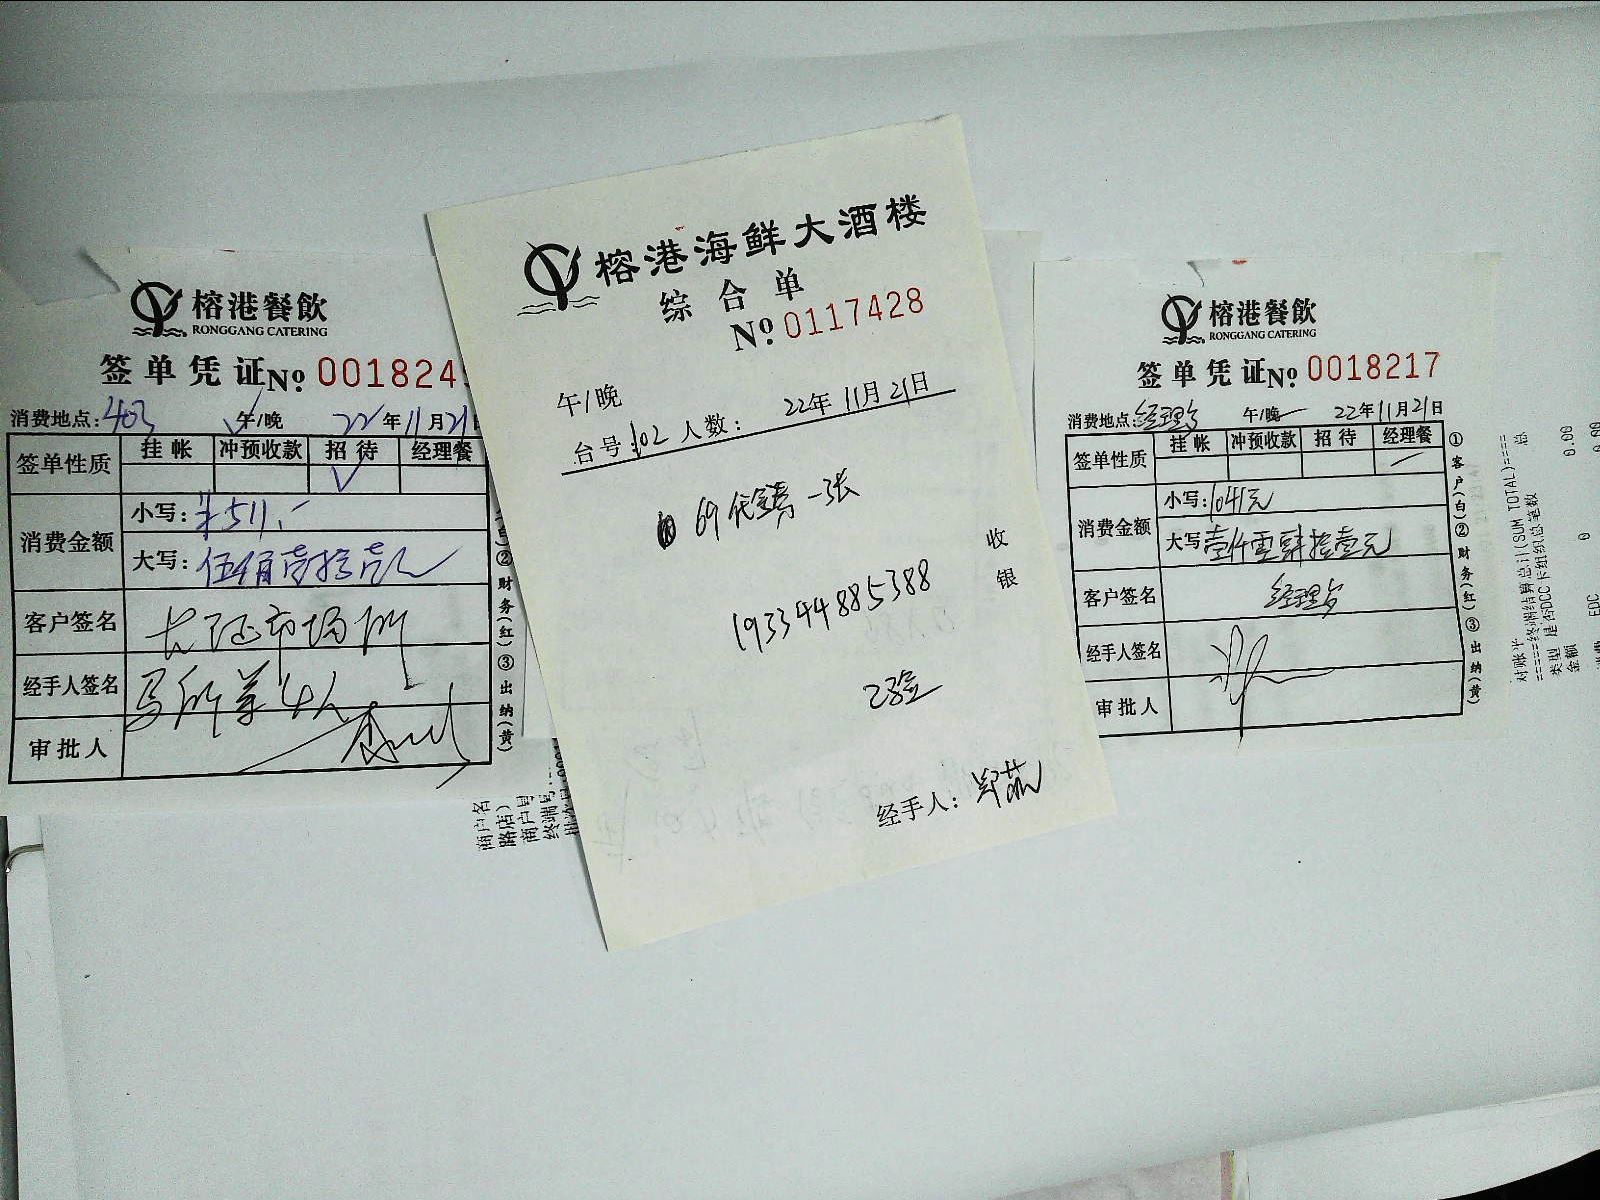 榕港餐飲
RONGGANG CATERING
签单凭证 No 0018245
消费地点:403 午/晚 22年11月21日
签单性质 挂帐 冲预收款 招待 经理餐
消费金额 小写:¥511.-
大写:伍佰壹拾壹元
客户签名
经手人签名
审批人
②财务(红)③出纳(黄)
榕港海鲜大酒楼
综合单
No 0117428
午/晚 22年11月21日
台号:102 人数:
69代金券一张
193344885388
已验
收银
经手人:
榕港餐飲
RONGGANG CATERING
签单凭证 No 0018217
消费地点: 午/晚 22年11月21日
签单性质 挂帐 冲预收款 招待 经理餐
消费金额 小写:1041元
大写 壹仟零肆拾壹元
客户签名
经手人签名
审批人
①客户(白)②财务(红)③出纳(黄)
商户名
路店)
商户号
终端号:
对账平
=====终端结算总计(SUM TOTAL)====
类型 总
是否DCC 卡组织总笔数
金额 0.00
EDC 0